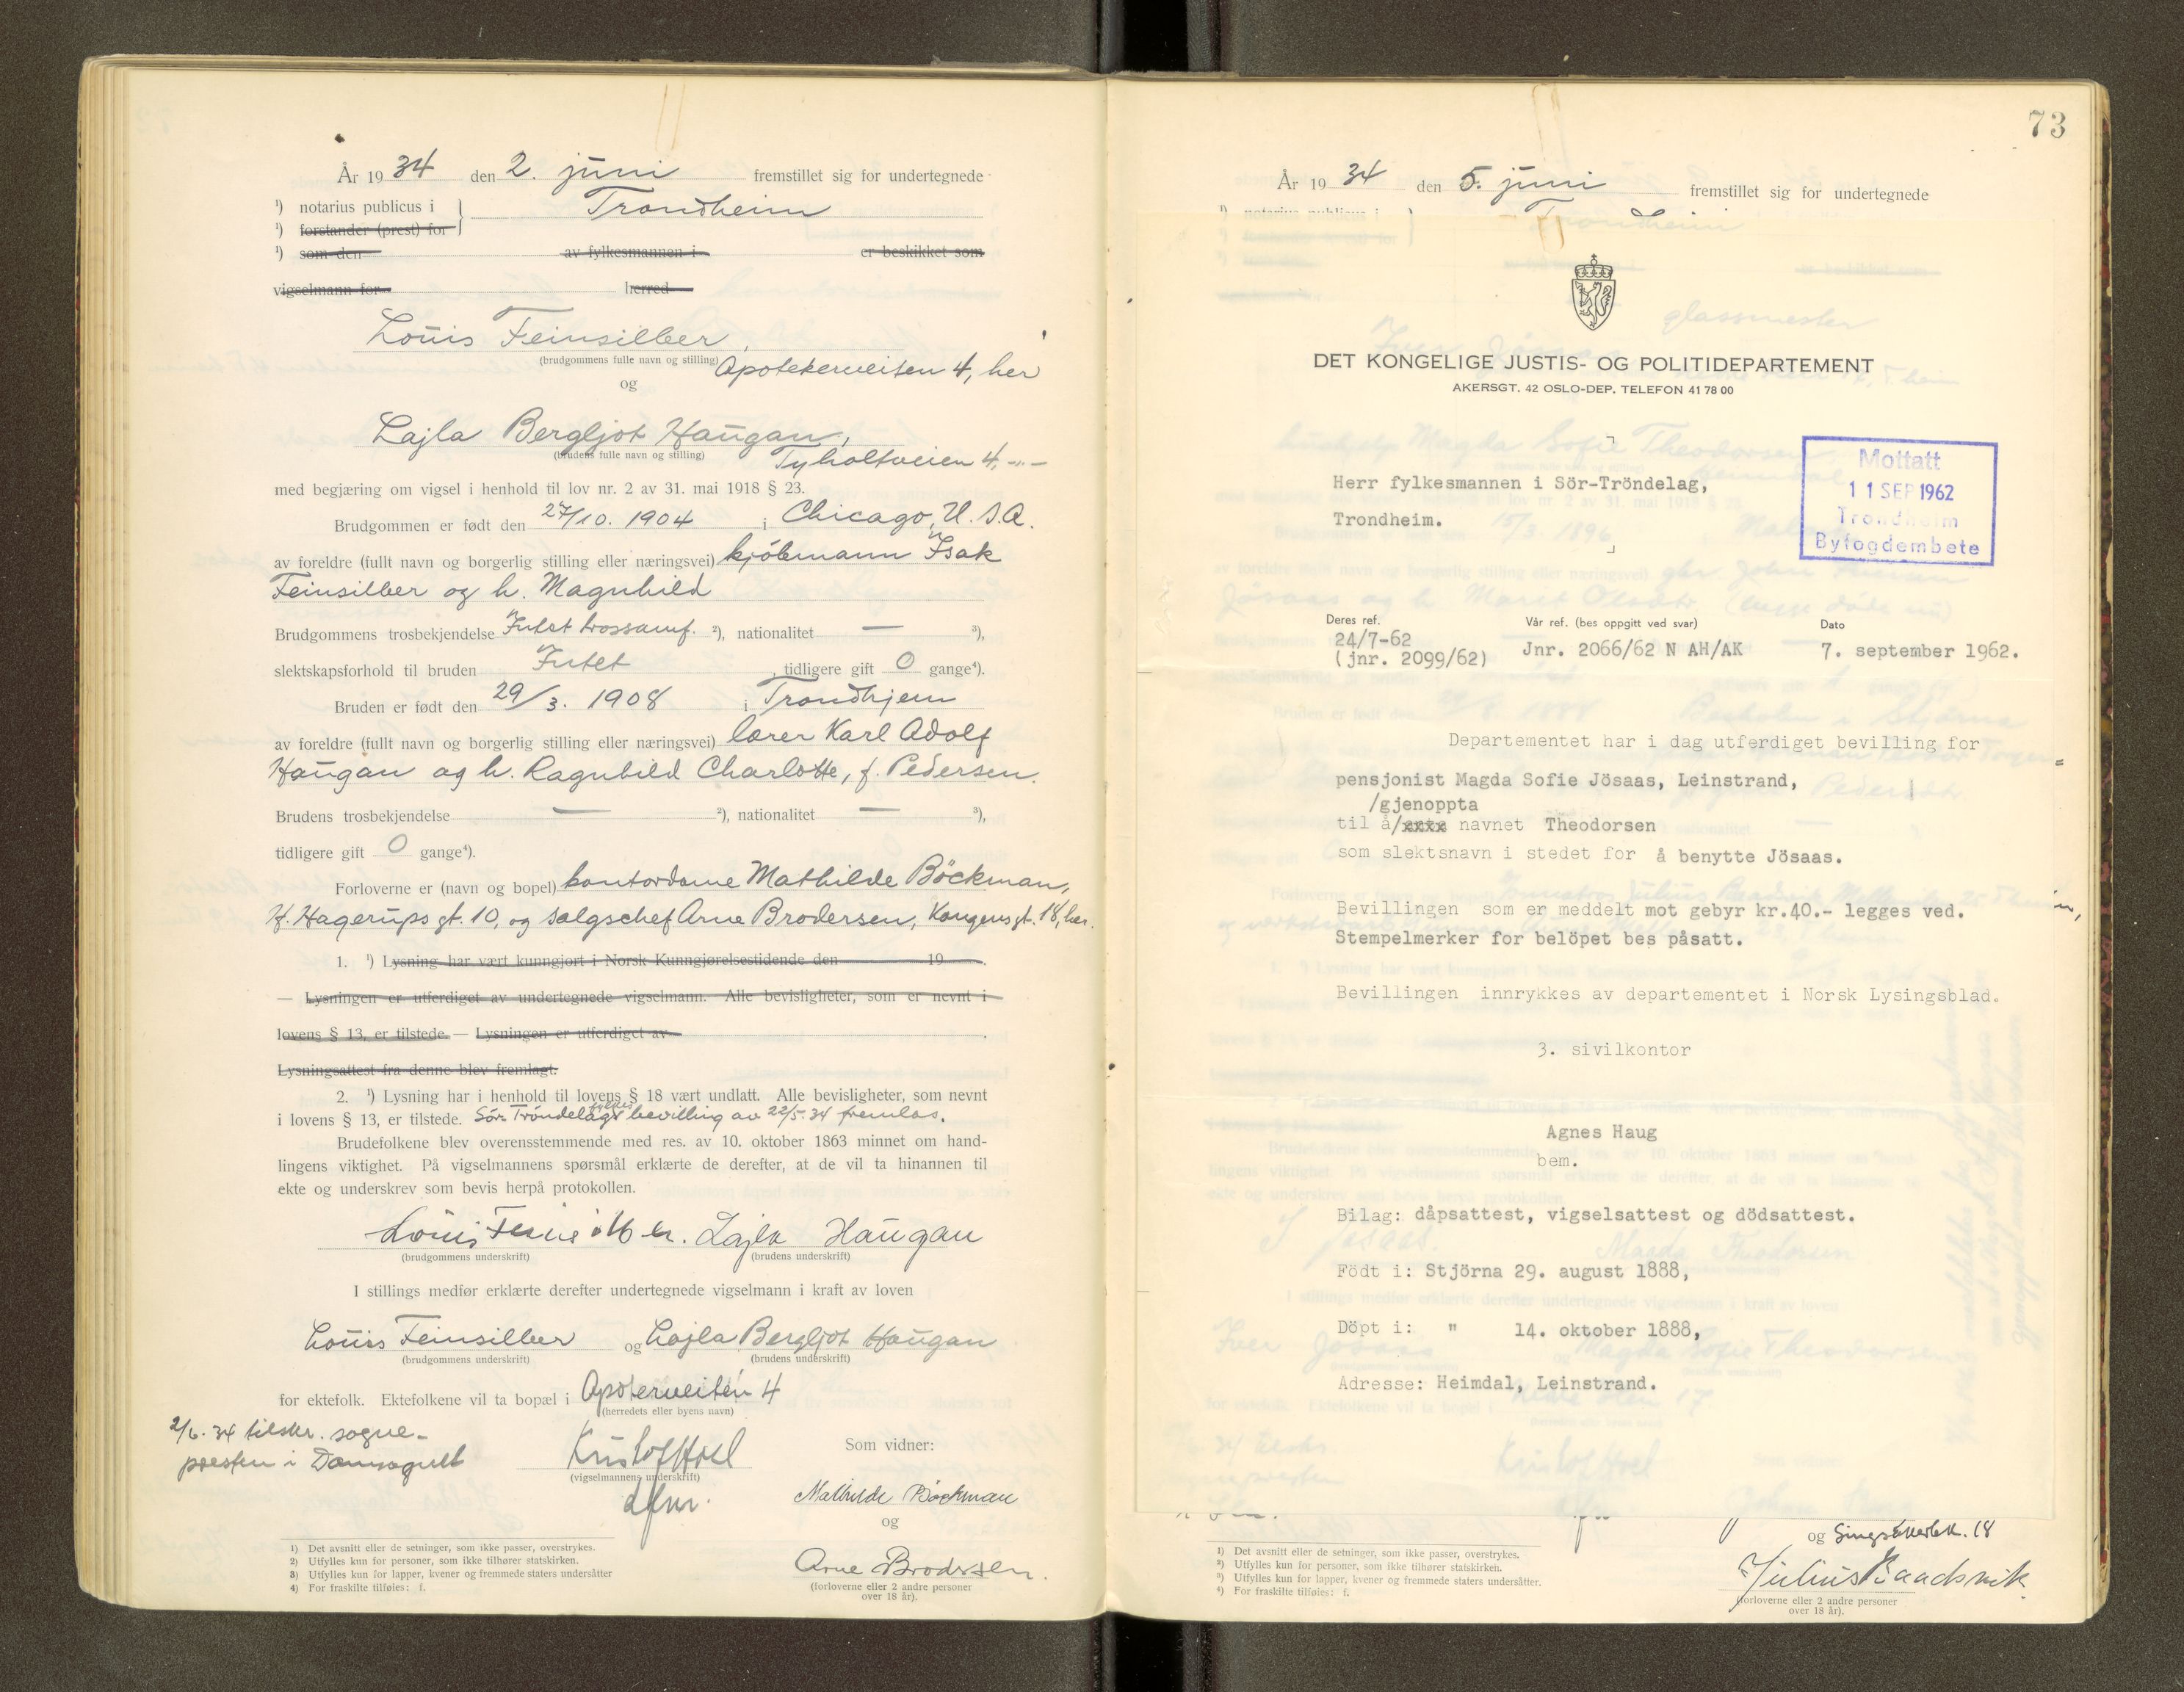 År 1934 den 2. juni fremstillet sig for undertegnede
¹) notarius publicus i Trondheim
¹) forstander (prest) for
¹) som den av fylkesmannen i er beskikket som
vigselmann for herred
Louis Feinsilber,
(brudgommens fulle navn og stilling) Apotekerveiten 4, her
og
Lajla Bergljot Haugan,
(brudens fulle navn og stilling) Tyholtveien 4, -"-
med begjæring om vigsel i henhold til lov nr. 2 av 31. mai 1918 § 23.
Brudgommen er født den 27/10. 1904 i Chicago, U.S.A.
av foreldre (fullt navn og borgerlig stilling eller næringsvei) kjöbmann Isak
Feinsilber og h. Magnhild
Brudgommens trosbekjendelse Intet trossamf. ²), nationalitet — ³),
slektskapsforhold til bruden Intet, tidligere gift 0 gange⁴).
Bruden er født den 29/3. 1908 i Trondhjem
av foreldre (fullt navn og borgerlig stilling eller næringsvei) lærer Karl Adolf
Haugan og h. Ragnhild Charlotte, f. Pedersen.
Brudens trosbekjendelse — ²), nationalitet — ³),
tidligere gift 0 gange⁴).
Forloverne er (navn og bopel) kontordame Mathilde Böckman,
H. Hagerups gt. 10, og salgschef Arne Brodersen, Kongens gt. 18, her.
1. ¹) Lysning har vært kunngjort i Norsk Kunngjørelsestidende den 19 .
— Lysningen er utferdiget av undertegnede vigselmann. Alle bevisligheter, som er nevnt i
lovens § 13, er tilstede. — Lysningen er utferdiget av .
Lysningsattest fra denne blev fremlagt.
2. ¹) Lysning har i henhold til lovens § 18 vært undlatt. Alle bevisligheter, som nevnt
i lovens § 13, er tilstede. Sör-Tröndelags fylkes bevilling av 22/5-34 fremlas.
Brudefolkene blev overensstemmende med res. av 10. oktober 1863 minnet om hand-
lingens viktighet. På vigselmannens spørsmål erklærte de derefter, at de vil ta hinannen til
ekte og underskrev som bevis herpå protokollen.
Louis Feinsilber. Lajla Haugan
(brudgommens underskrift) (brudens underskrift)
I stillings medfør erklærte derefter undertegnede vigselmann i kraft av loven
Louis Feinsilber og Lajla Bergljot Haugan
(brudgommens underskrift) (brudens underskrift)
for ektefolk. Ektefolkene vil ta bopæl i Apoterveiten 4
(herredets eller byens navn)
2/6. 34 tilskr. sogne-
presten i Domsognet
Kristof Hoel
(vigselmannens underskrift)
dfm.
Som vidner:
Mathilde Böckman
og
Arne Brodersen.
(forloverne eller 2 andre personer
over 18 år).
1) Det avsnitt eller de setninger, som ikke passer, overstrykes.
2) Utfylles kun for personer, som ikke tilhører statskirken.
3) Utfylles kun for lapper, kvener og fremmede staters undersåtter
4) For fraskilte tilføies: f.
73
År 1934 den 5. juni fremstillet sig for undertegnede
DET KONGELIGE JUSTIS- OG POLITIDEPARTEMENT
AKERSGT. 42 OSLO-DEP. TELEFON 41 78 00
Mottatt
11 SEP 1962
Trondheim
Byfogdembete
Herr fylkesmannen i Sör-Tröndelag,
Trondheim.
Deres ref. Vår ref. (bes oppgitt ved svar) Dato
24/7-62
(jnr. 2099/62) Jnr. 2066/62 N AH/AK 7. september 1962.
Departementet har i dag utferdiget bevilling for
pensjonist Magda Sofie Jösaas, Leinstrand,
/gjenoppta
til å/xxxx navnet Theodorsen
som slektsnavn i stedet for å benytte Jösaas.
Bevillingen som er meddelt mot gebyr kr.40.- legges ved.
Stempelmerker for belöpet bes påsatt.
Bevillingen innrykkes av departementet i Norsk Lysingsblad.
3. sivilkontor
Agnes Haug
bem.
Bilag: dåpsattest, vigselsattest og dödsattest.
Födt i: Stjörna 29. august 1888,
Döpt i: " 14. oktober 1888,
Adresse: Heimdal, Leinstrand.
og Singsakerbk. 18
Julius Baadsvik
(forloverne eller 2 andre personer
over 18 år).
¹) Det avsnitt eller de setninger, som ikke passer, overstrykes.
²) Utfylles kun for personer, som ikke tilhører statskirken.
³) Utfylles kun for lapper, kvener og fremmede staters undersåtter.
⁴) For fraskilte tilføies: f.